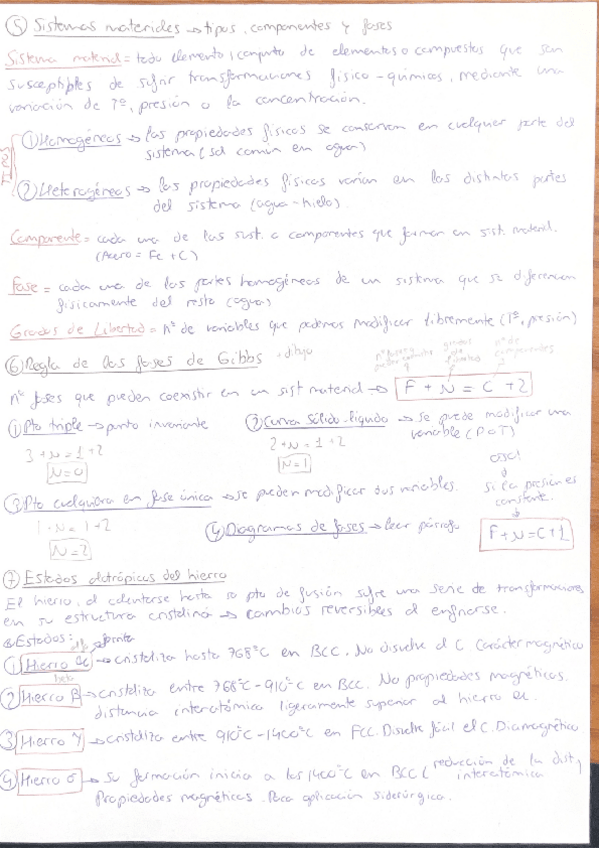 ⑤ Sistemas materiales → tipos, componentes y fases
Sistema material = todo elemento, conjunto de elementos o compuestos que son
susceptibles de sufrir transformaciones físico-químicas, mediante una
variación de Tª, presión o la concentración.
① Homogéneos → las propiedades físicas se conservan en cualquier parte del
sistema (sal común en agua)
TIPOS
② Heterogéneos → las propiedades físicas varían en las distintas partes
del sistema (agua-hielo).
Componente = cada una de las sust. o componentes que forman en sist. material.
(Acero = Fe + C)
Fase = cada una de las partes homogéneas de un sistema que se diferencian
físicamente del resto (agua)
Grados de Libertad = nº de variables que podemos modificar libremente (Tª, presión)
⑥ Regla de las fases de Gibbs · dibujo
grados de libertad
nº de componentes
nº fases que pueden coexistir en un sist material → F + N = C + 2
① Pto triple → punto invariante
② Curva sólido-líquido → se puede modificar una
variable (P o T)
3 + N = 1 + 2
N = 0
2 + N = 1 + 2
N = 1
OJO!
si la presión es
constante.
F + N = C + 1
③ Pto cualquiera en fase única → se pueden modificar dos variables.
1 + N = 1 + 2
N = 2
④ Diagramas de fases → leer párrafo
⑦ Estados alotrópicos del hierro
El hierro, al calentarse hasta su pto de fusión sufre una serie de transformaciones
en su estructura cristalina → cambios reversibles al enfriarse.
Estados:
alfa ferrita
① Hierro α → cristaliza hasta 768ºC en BCC. No disuelve el C. Carácter magnético
beta
② Hierro β → cristaliza entre 768ºC-910ºC en BCC. No propiedades magnéticas.
distancia interatómica ligeramente superior al hierro α.
③ Hierro γ → cristaliza entre 910ºC-1400ºC en FCC. Disuelve fácil el C. Diamagnético
④ Hierro σ → Su formación inicia a los 1400ºC en BCC (reducción de la dist,
interatómica
Propiedades magnéticas. Para aplicación siderúrgica.